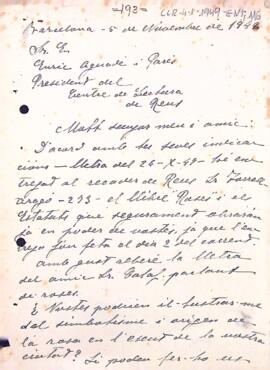 -193-
CCR-4-5-1949-ENT-149
Barcelona - 5 de Novembre de 1949
Sr. En
Enric Aguadé i Parés
President del
Centre de Lectura
de Reus
Molt senyor meu i amic:
D'acord amb les seves indica
cions - lletra del 26-X-49 - he en
tregat al recader de Reus
- 233 - el llibre Roses i els
Estatuts que segurament obraràn
ja en poder de vostès, ja que l'en
trega fou feta el dia 2 del corrent.
amb gust la lletra
del amic Sr. parlant
de roses.
E Vostès podrien il·lustrar-me
del simbolisme i origen de
la rosa en l'escut de la nostra
ciutat? Si poden fer-ho